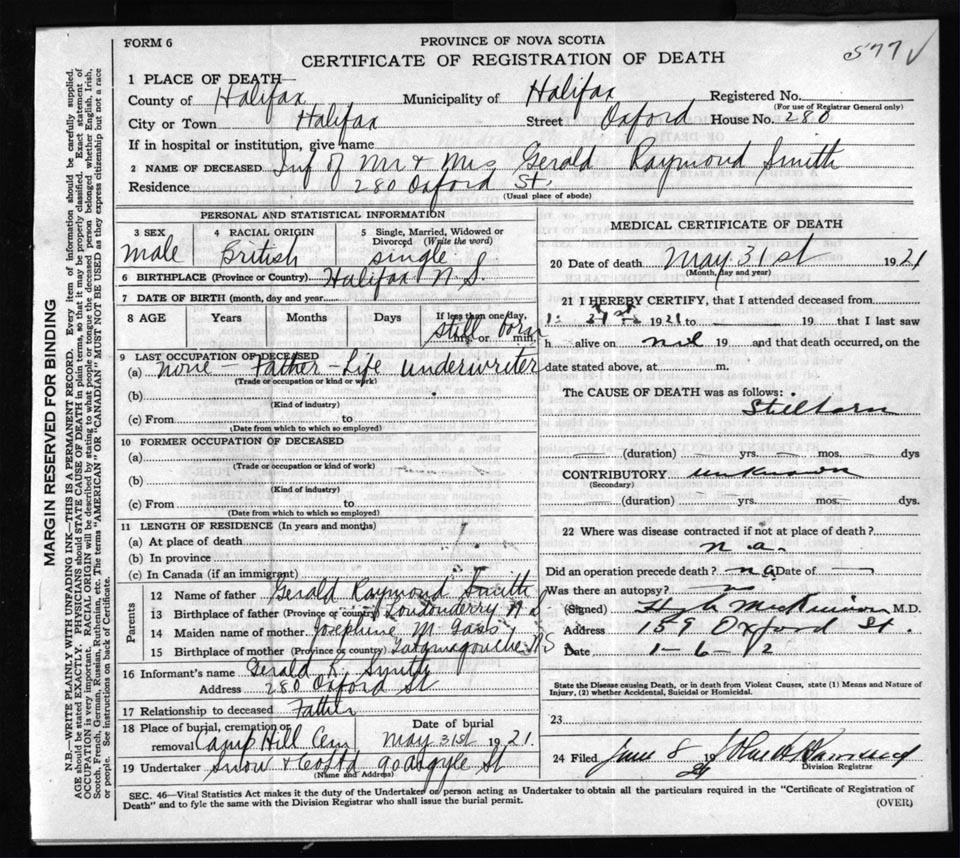 FORM 6
PROVINCE OF NOVA SCOTIA
CERTIFICATE OF REGISTRATION OF DEATH
577
1 PLACE OF DEATH—
County of Halifax Municipality of Halifax Registered No.
(For use of Registrar General only)
City or Town Halifax Street Oxford House No. 280
If in hospital or institution, give name
2 NAME OF DECEASED Inf of Mr & Mrs Gerald Raymond Smith
Residence 280 Oxford St.
(Usual place of abode)
PERSONAL AND STATISTICAL INFORMATION
3 SEX 4 RACIAL ORIGIN 5 Single, Married, Widowed or Divorced (Write the word)
male British single
6 BIRTHPLACE (Province or Country) Halifax N.S.
7 DATE OF BIRTH (month, day and year)
8 AGE Years Months Days If less than one day, hrs. or min.
still born
9 LAST OCCUPATION OF DECEASED
(a) none - Father - Life underwriter
(Trade or occupation or kind or work)
(b)
(Kind of industry)
(c) From to
(Date from which to which so employed)
10 FORMER OCCUPATION OF DECEASED
(a)
(Trade or occupation or kind of work)
(b)
(Kind of industry)
(c) From to
(Date from which to which so employed)
11 LENGTH OF RESIDENCE (In years and months)
(a) At place of death
(b) In province
(c) In Canada (if an immigrant)
Parents
12 Name of father Gerald Raymond Smith
13 Birthplace of father (Province or country) Londonderry N S
14 Maiden name of mother Josephine M
15 Birthplace of mother (Province or country) Tatamagouche NS
16 Informant's name Gerald R. Smith
Address 280 Oxford St
17 Relationship to deceased Father
18 Place of burial, cremation or removal Camp Hill Cem Date of burial May 31st 1921.
19 Undertaker Snow & 90 Argyle St
(Name and Address)
MEDICAL CERTIFICATE OF DEATH
20 Date of death May 31st 1921
(Month, day and year)
21 I HEREBY CERTIFY, that I attended deceased from
1921 to 19 that I last saw
h alive on nil 19 and that death occurred, on the
date stated above, at m.
The CAUSE OF DEATH was as follows:
Stillborn
(duration) yrs. mos. dys
CONTRIBUTORY unknown
(Secondary)
(duration) yrs. mos. dys.
22 Where was disease contracted if not at place of death?
n.a.
Did an operation precede death? na Date of
Was there an autopsy?
(Signed) Hugh McKinnon M.D.
Address 159 Oxford St.
Date 1-6-
State the Disease causing Death, or in death from Violent Causes, state (1) Means and Nature of
Injury, (2) whether Accidental, Suicidal or Homicidal.
23
24 Filed June 8 19
21
Division Registrar
SEC. 46—Vital Statistics Act makes it the duty of the Undertaker or person acting as Undertaker to obtain all the particulars required in the "Certificate of Registration of
Death" and to fyle the same with the Division Registrar who shall issue the burial permit.
(OVER)
MARGIN RESERVED FOR BINDING
N.B.—WRITE PLAINLY WITH UNFADING INK—THIS IS A PERMANENT RECORD. Every item of information should be carefully supplied.
AGE should be stated EXACTLY. PHYSICIANS should STATE CAUSE OF DEATH in plain terms, so that it may be properly classified. Exact statement of
OCCUPATION is very important. RACIAL ORIGIN will be described by stating to what people or tongue the deceased person belonged whether English, Irish,
Scotch, French, German, Russian, Ruthenian, etc. The terms "AMERICAN" OR "CANADIAN" MUST NOT BE USED as they express citizenship but not a race
or people. See instructions on back of Certificate.